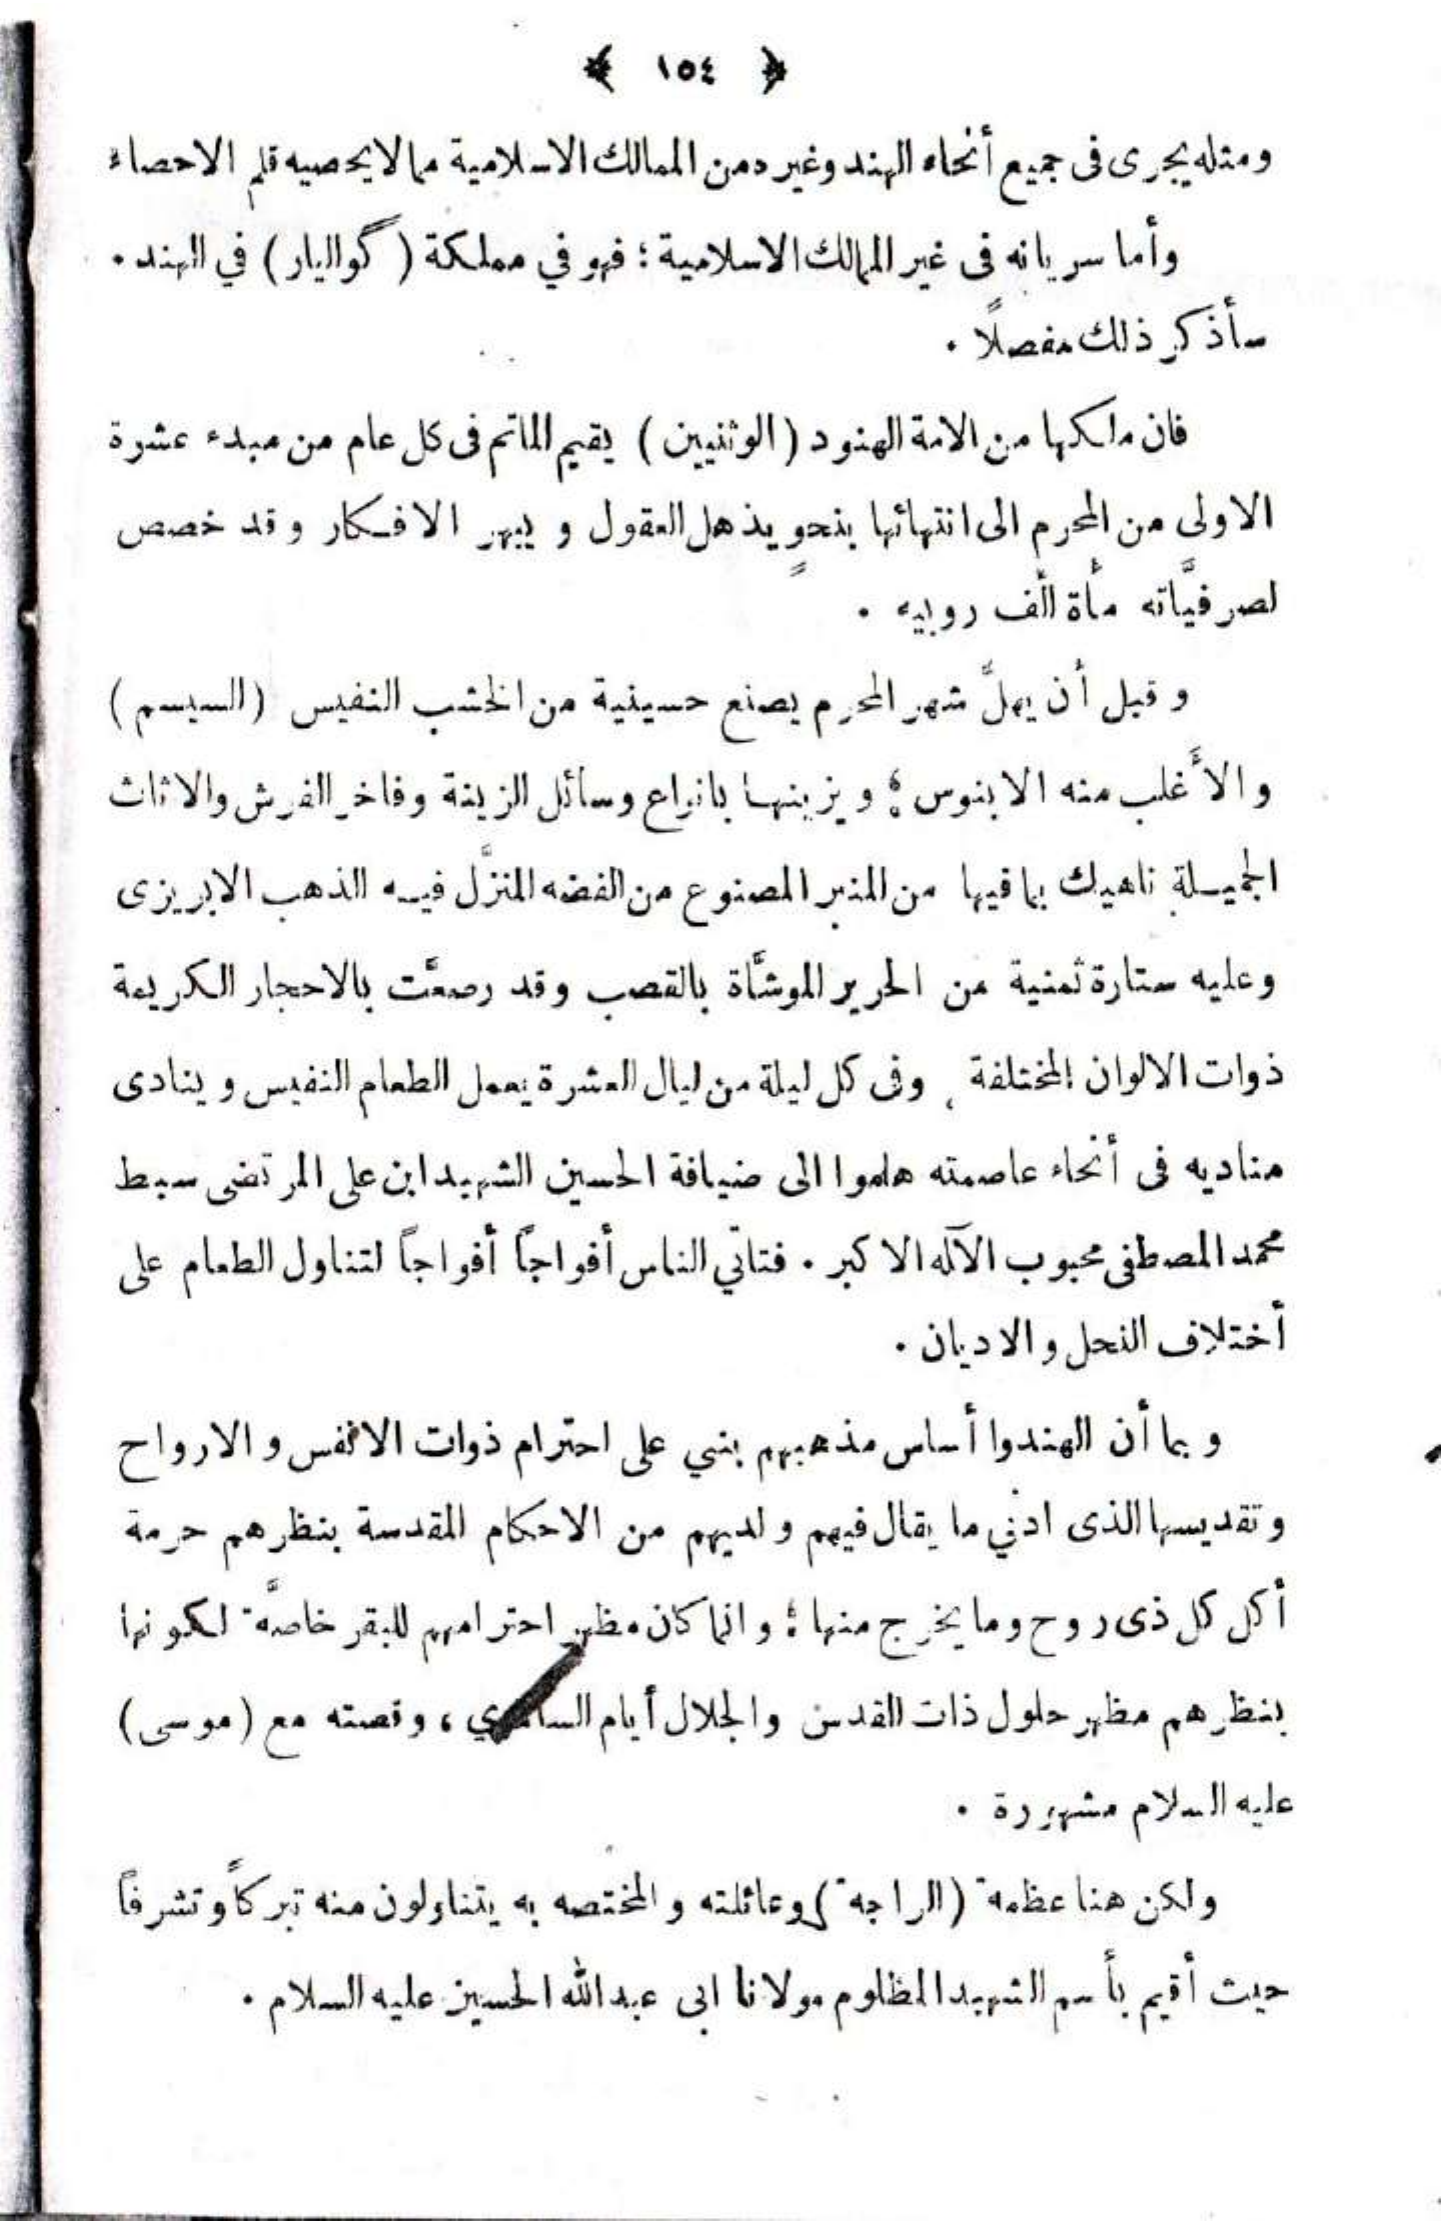 ﴿ ١٥٤ ﴾
ومثله يجرى فى جميع أنحاء الهند وغيره من الممالك الاسلامية مما لا يحصيه قلم الاحصاء
وأما سريانه فى غير الممالك الاسلامية ؛ فهو في مملكة ( گواليار ) في الهند .
سأذكر ذلك مفصلاً .
فان ملكها من الامة الهنود ( الوثنيين ) يقيم الماتم فى كل عام من مبدء عشرة
الاولى من المحرم الى انتهائها بنحوٍ يذهل العقول و يبهر الافكار وقد خصص
لصرفيَّاته مأة ألف روبيه .
و قبل أن يهلَّ شهر المحرم يصنع حسينية من الخشب النفيس ( السيسم )
و الأغلب منه الابنوس ؛ و يزينها بانواع وسائل الزينة وفاخر الفرش والاثاث
الجميلة ناهيك بما فيها من المنبر المصنوع من الفضه المنزَّل فيه الذهب الابريزى
وعليه ستارة ثمنية من الحرير الموشَّاة بالقصب وقد رصعَّت بالاحجار الكريمة
ذوات الالوان المختلفة ، وفى كل ليلة من ليال العشرة يعمل الطعام النفيس و ينادى
مناديه فى أنحاء عاصمته هلموا الى ضيافة الحسين الشهيد ابن على المرتضى سبط
محمد المصطفى محبوب الآله الاكبر . فتأتي الناس أفواجاً أفواجاً لتناول الطعام على
أختلاف النحل و الاديان .
و بما أن الهندوا أساس مذهبهم بني على احترام ذوات الانفس و الارواح
و تقديسها الذى ادني ما يقال فيهم و لديهم من الاحكام المقدسة بنظرهم حرمة
أكل كل ذى روح وما يخرج منها ؛ و انما كان مظهر احترامهم للبقر خاصَّة لكونها
بنظرهم مظهر حلول ذات القدس والجلال أيام السامري ، وقصته مع ( موسى )
عليه السلام مشهورة .
ولكن هنا عظمة ( الراجة ) وعائلته و المختصه به يتناولون منه تبركاً و تشرفاً
حيث أقيم بأسم الشهيد المظلوم مولانا ابى عبدالله الحسين عليه السلام .